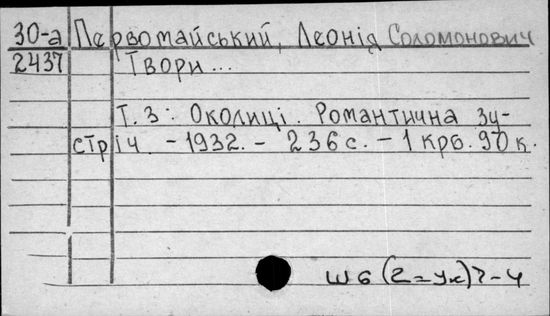 30-а Первомайський, Леонід Соломонович
2437 Твори...
Т. 3: Околиці. Романтична зу-
стріч. - 1932. - 236 с. - 1 крб. 90 к.
Ш6(2=Ук)7-4